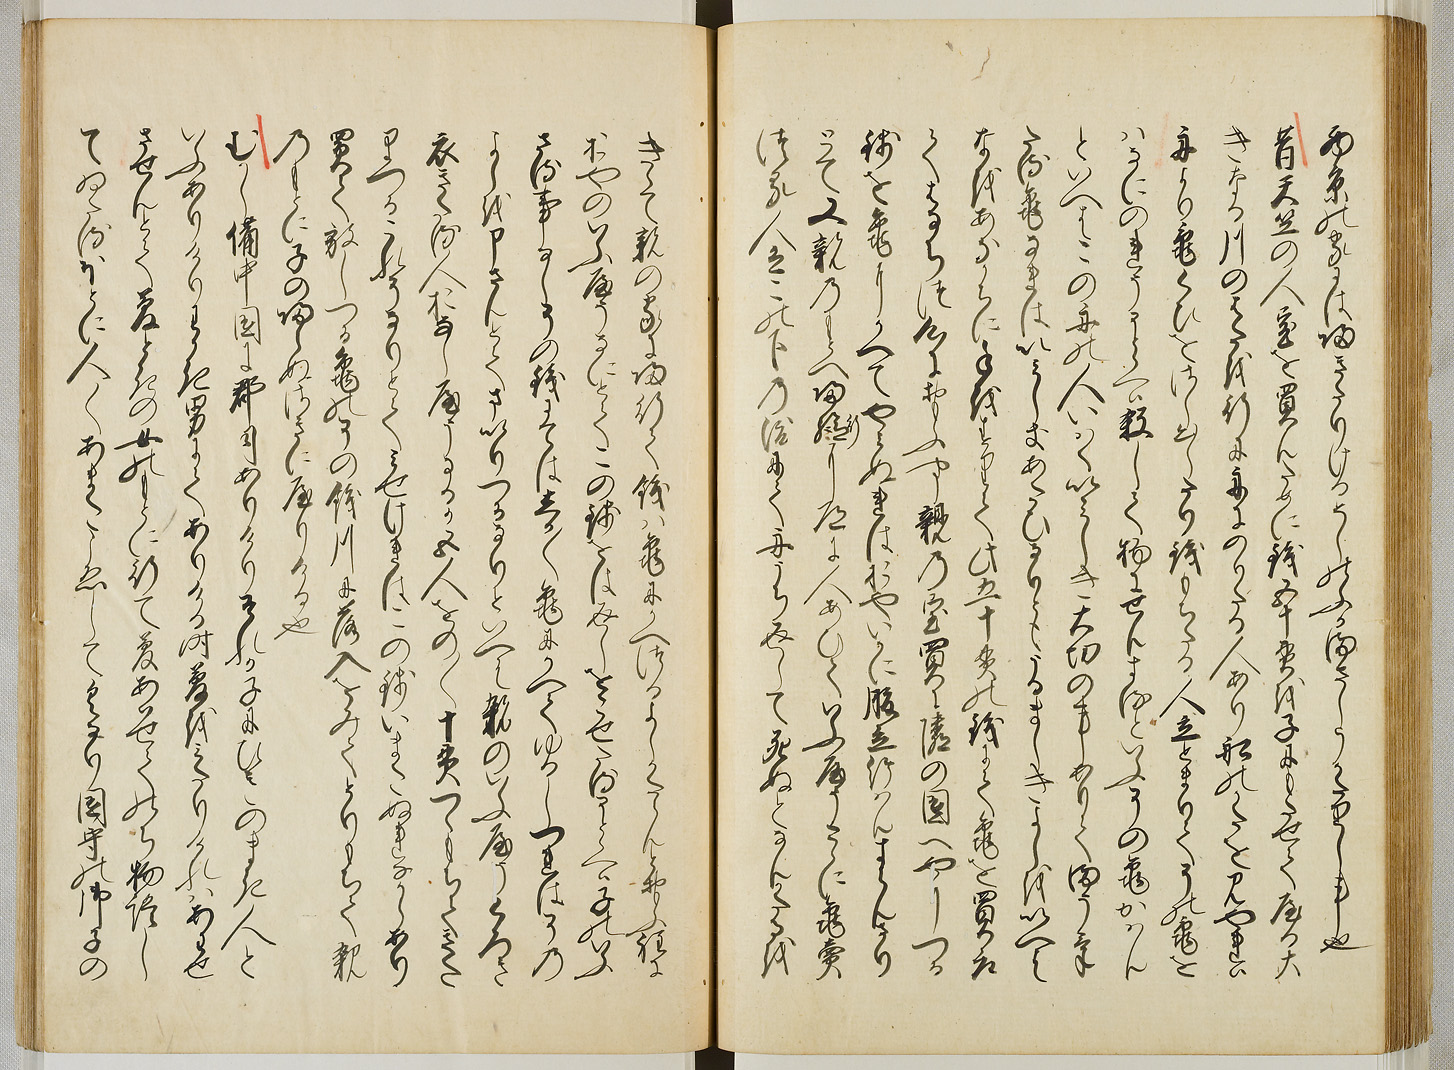 西京の家には帰きたりけるとしのふかまさしうかたりし也
昔天竺の人宝を買んために銭五十貫を子にもたせてやる大
きなる川のはたを行に舟にのりたる人あり舩のかたを見やれは
舟より亀くひをさし出したり銭もちたる人立とまりてその亀を
はなにのれうそとゝへは殺して物にせんするといふその亀かはん
といへはこの舟の人いはくいみしき大切の事ありてまうけ
たる亀なれはいみしきあたひなりともうるましきよしをいへは
なをあなかちに手をすりて此五十貫の銭にて亀を買取
てはなちつ心におもふやう親の宝買に隣の国へやりつる
銭を亀にかへてやみぬれはおやいかに腹立給はんすらんさり
とて又親のもとへ帰行に道に人あひていふやうこゝに亀売
つる人はこの下の渡にて舟うち返して死ぬとなんかたるを
きゝて親の家に帰行て銭は亀にかへつるよしかたらんと思ふ程に
おやのいふやうなにとてこの銭をは返しをこせたるそとゝへは子のいふ
さる事なしその銭にてはしか〱亀にかへてゆるしつれはその
よしを申さんとてまいりつるなりといへは親のいふやうくろき
衣きたる人おなしやうなるか五人をの〱十貫つゝもちてきた
りつるこれそなりとてみせけれはこの銭いまたぬれなからあり
買て放しつる亀のその銭川に落入をみてとりもちて親
のもとに子の帰らぬさきにやりける也
むかし備中国に郡司ありけりそれか子にひきのまき人と
いふありけりわかき男にてありける時夢をみたりけれはあはせ
させんとて夢ときの女のもとに行て夢あはせてのち物語し
てゐたるほとに人〱あまたこゑしてくるなり国守の御子の